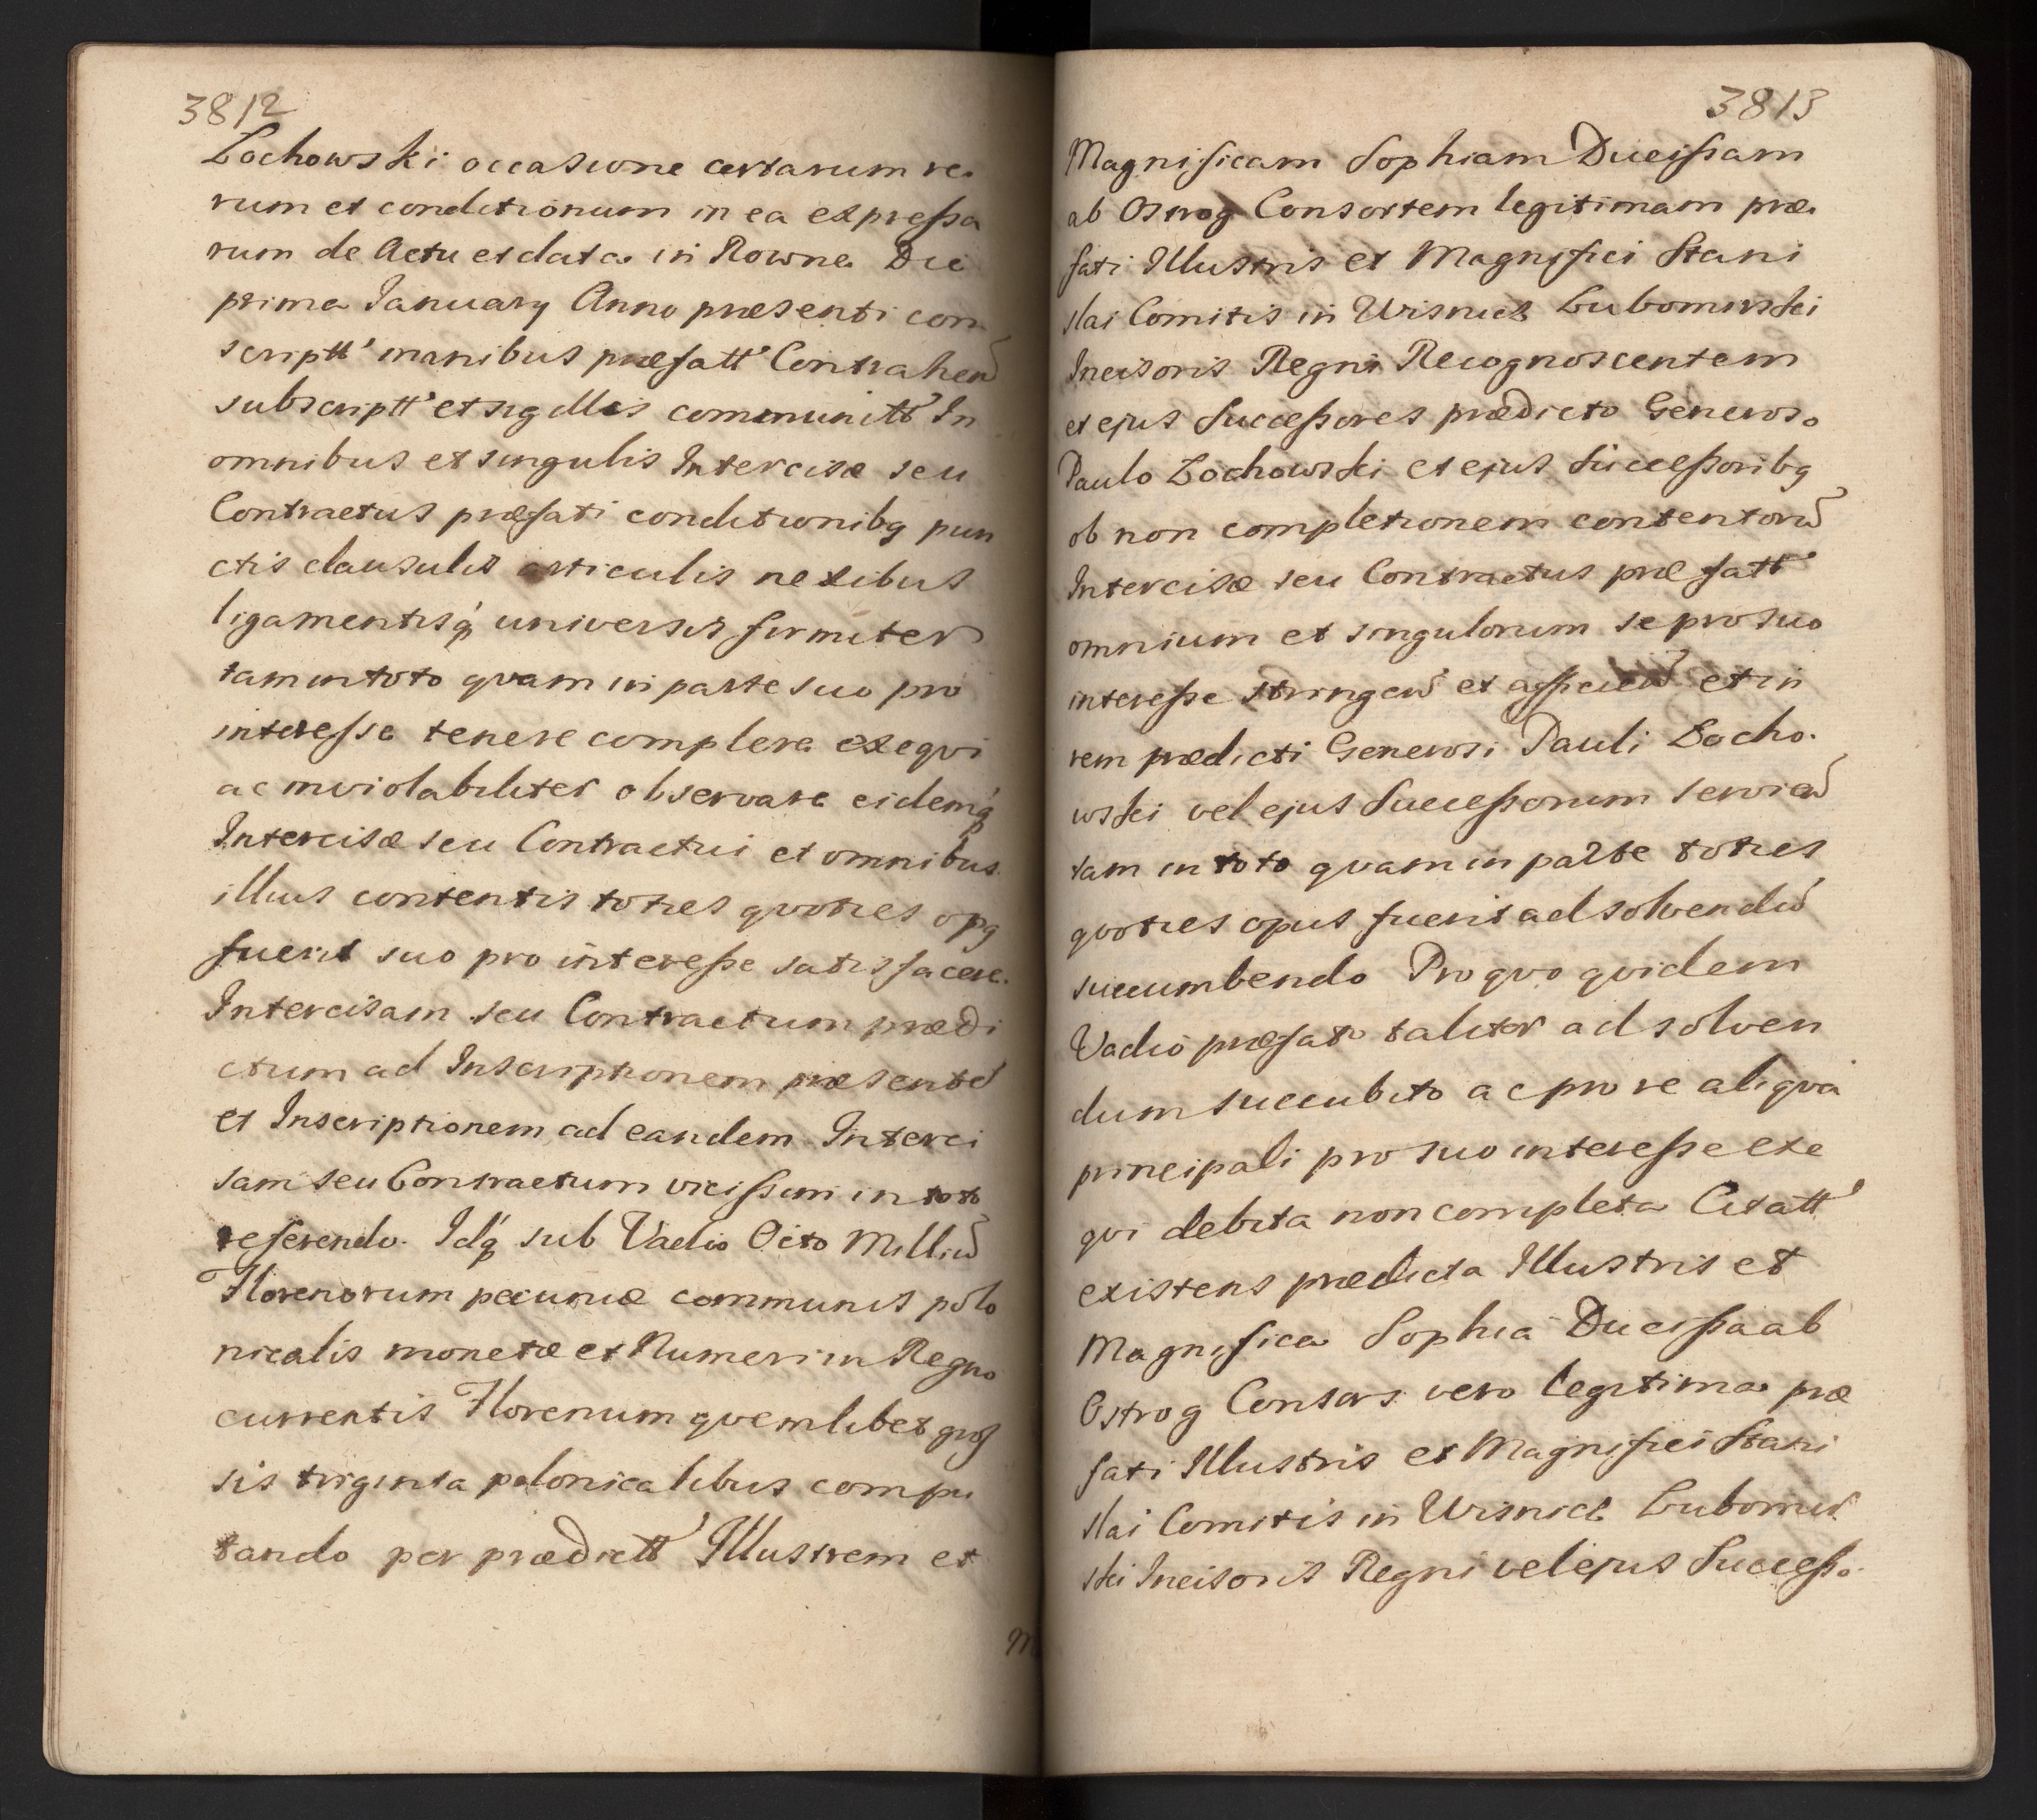 3812
Zochowski occasione certarum re.
rum et conditionum in ea expressa
rum de Actu et data in Rowne Die
prima January Anno præsenti con
scriptt' manibus præfatt' Contrahen
subscriptt' et sigillis communitt' In
omnibus et singulis Intercisæ seu
Contractus præfati conditionibq pun
ctis clausulis articulis nexibus
ligamentisq́ universis firmiter
tam in toto qvam in parte suo pro
interesse tenere complere exeqvi
ac inviolabiliter observare eidemq́
Intercisæ seu Contractui et omnibus
illius contentis toties qvoties opq
fuerit suo pro interesse satisfacere.
Intercisam seu Contractum prædi
ctum ad Inscriptionem præsente
et Inscriptionem ad eandem Interci
sam seu Contractum vicissim in toto
referendo. Idq́ sub Vadio Octo Milliu
Florenorum pecuniæ communis polo
nicalis monetæ et Numeri in Regno
currentis Florenum qvemlibet gros
sis triginta polonicalibus compu
tando per prædictt' Illustrem et
M
3813
Magnificam Sophiam Ducissam
ab Ostrog Consortem legitimam præ.
fati Illustris et Magnifici Stani
slai Comitis in Wisnicz Lubomirski
Incisoris Regni Recognoscentem
et ejus Successores prædicto Generoso
Paulo Zochowski et ejus Successoribq
ob non completionem contentoru
Intercisæ seu Contractus præfatt'
omnium et singulorum se pro suo
interesse stringen et afficien et in
rem prædicti Generosi Pauli Zocho.
wski vel ejus Successorum servien
tam in toto qvam in parte toties
qvoties opus fuerit ad solvendu
succumbendo Pro qvo qvidem
Vadio præfato taliter ad solven
dum succubito ac pro re aliqva
principali pro suo interesse exe
qvi debita non completa Citatt'
existens prædicta Illustris et
Magnifica Sophia Ducissa ab
Ostrog Consors vero legitima præ
fati Illustris et Magnifici Stani
slai Comitis in Wisnicz Lubomir
ski Incisoris Regni vel ejus Successo.